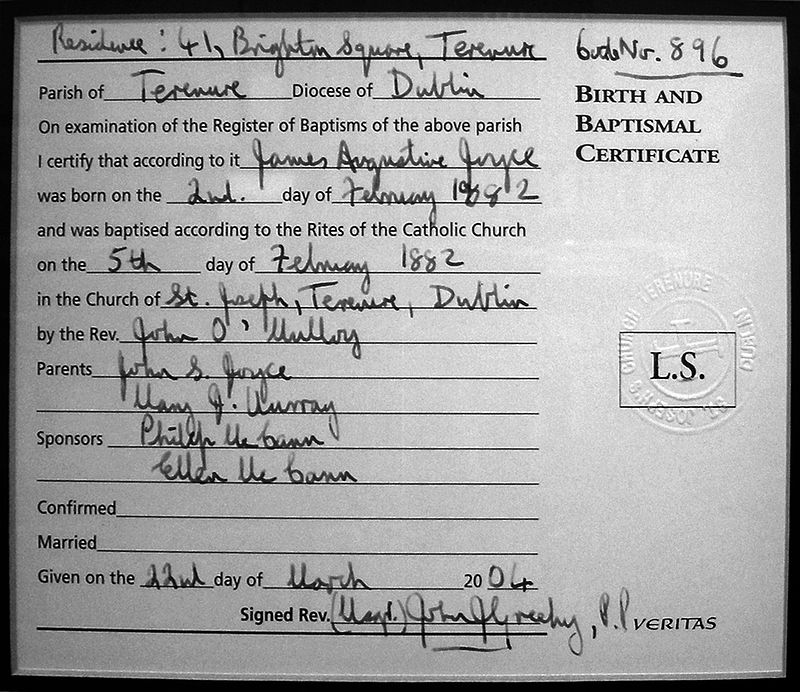 Residence: 41, Brighton Square, Terenure
Code No. 896
Parish of Terenure Diocese of Dublin
BIRTH AND
BAPTISMAL
CERTIFICATE
On examination of the Register of Baptisms of the above parish
I certify that according to it James Augustine Joyce
was born on the 2nd. day of February 1882
and was baptised according to the Rites of the Catholic Church
on the 5th day of February 1882
in the Church of St. Joseph, Terenure, Dublin
by the Rev. John O'Mulloy
Parents John S. Joyce
Mary J. Murray
Sponsors Philip Mc Cann
Ellen Mc Cann
Confirmed
Married
Given on the 22nd day of March 2004
Signed Rev. John P.P.
VERITAS
CHURCH TERENURE DUBLIN
L.S.